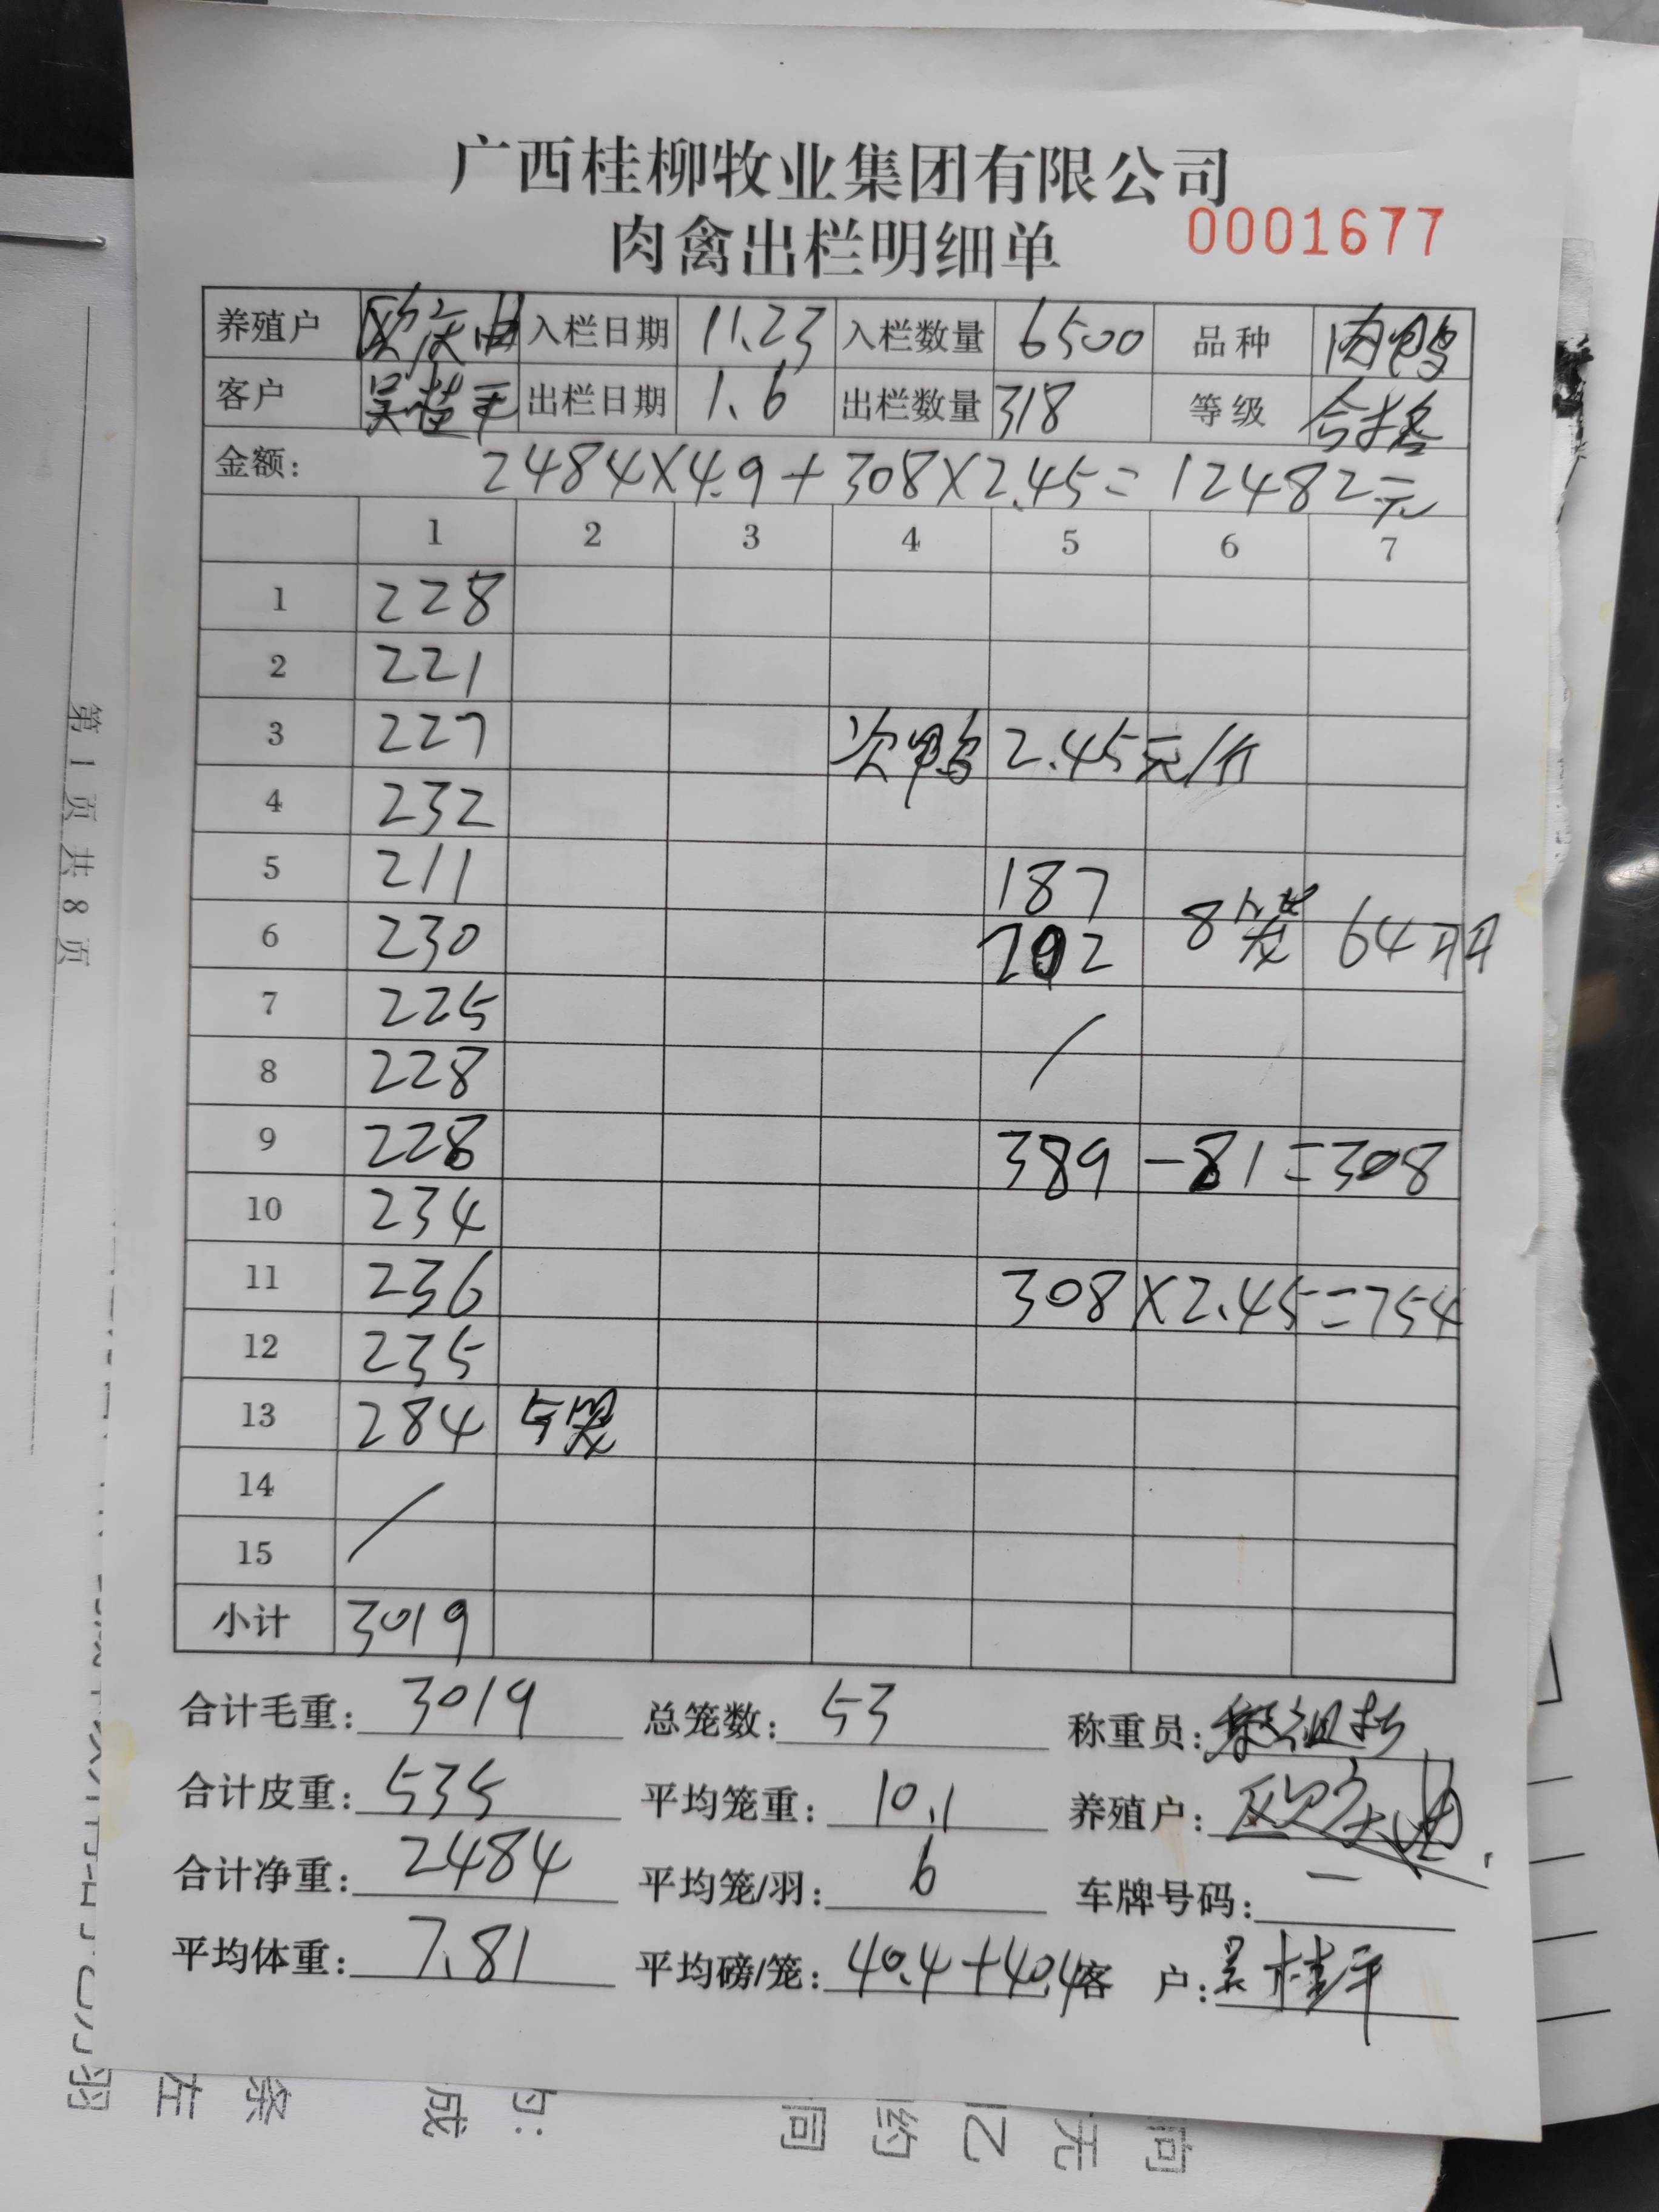 广西桂柳牧业集团有限公司
肉禽出栏明细单 0001677
养殖户 入栏日期 11.23 入栏数量 6500 品种 肉鸭
客户 吴桂平 出栏日期 1.6 出栏数量 318 等级 合格
金额: 2484×4.9+308×2.45=12482元
1 2 3 4 5 6 7
1 228
2 221
3 227 次鸭 2.45元/斤
4 232
5 211 187
6 230 202 8笼 64羽
7 225
8 228
9 228 389-81=308
10 234
11 236 308×2.45=754
12 235
13 284 5笼
14
15
小计 3019
合计毛重: 3019 总笼数: 53 称重员:
合计皮重: 535 平均笼重: 10.1 养殖户:
合计净重: 2484 平均笼/羽: 6 车牌号码: 一
平均体重: 7.81 平均磅/笼: 40.4+40.4 客 户: 吴桂平
第 1 页 共 8 页